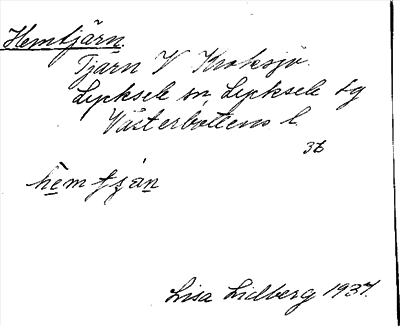 Hemtjärn.
Tjärn V Kroksjö.
Lycksele sn Lycksele lg
Västerbottens l.
36
hemtjän
Lisa Lidberg 1937.